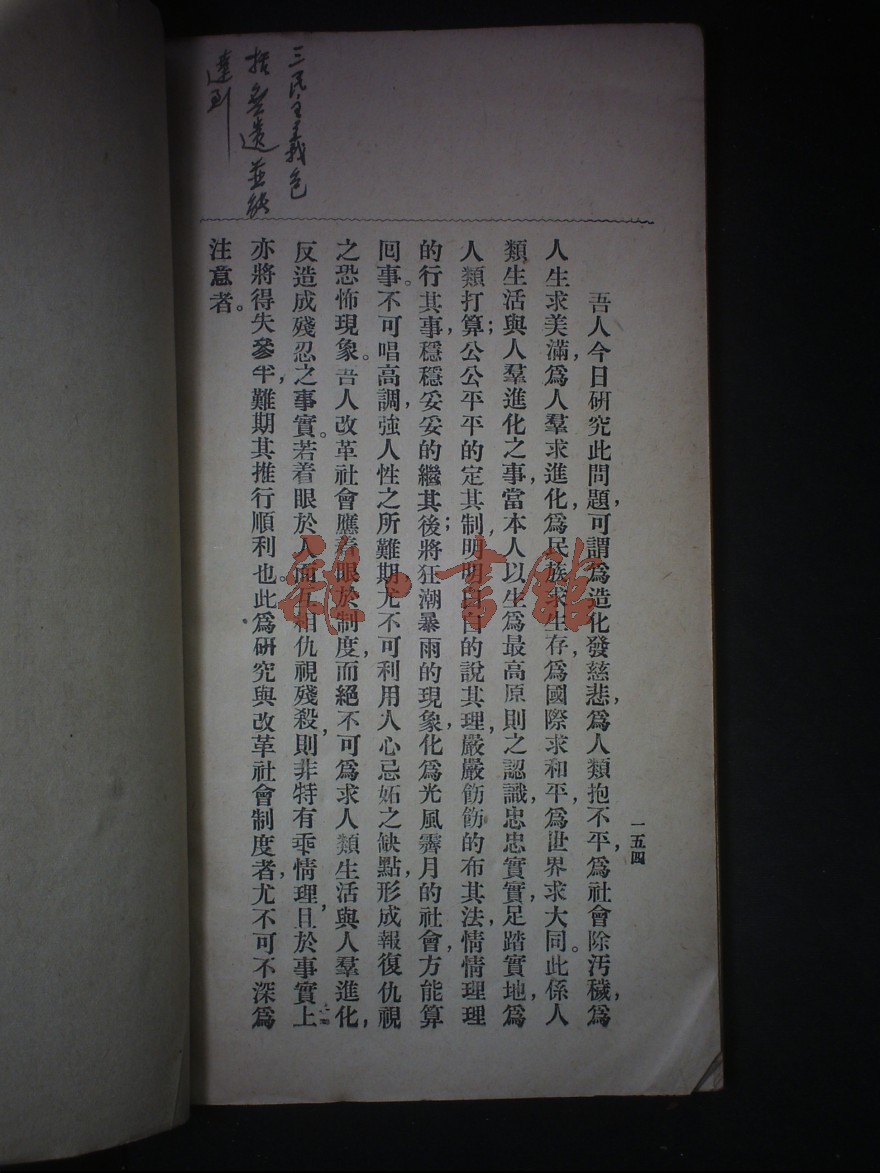 三民主義包
括無遺並能
達到
一五四
吾人今日研究此問題，可謂爲造化發慈悲，爲人類抱不平，爲社會除汚穢，爲
人生求美滿，爲人羣求進化，爲民族求生存，爲國際求和平，爲世界求大同。此係人
類生活與人羣進化之事，當本人以生爲最高原則之認識，忠忠實實，足踏實地，爲
人類打算；公公平平的定其制，明明白白的說其理，嚴嚴飭飭的布其法，情情理理
的行其事，穩穩妥妥的繼其後；將狂潮暴雨的現象，化爲光風霽月的社會，方能算
囘事。不可唱高調，強人性之所難期，尤不可利用人心忌妬之缺點，形成報復仇視
之恐怖現象。吾人改革社會應着眼於制度，而絕不可爲求人類生活與人羣進化，
反造成殘忍之事實。若着眼於人面互相仇視殘殺，則非特有乖情理，且於事實上
亦將得失參半，難期其推行順利也。此爲研究與改革社會制度者，尤不可不深爲
注意者。
雜·書館